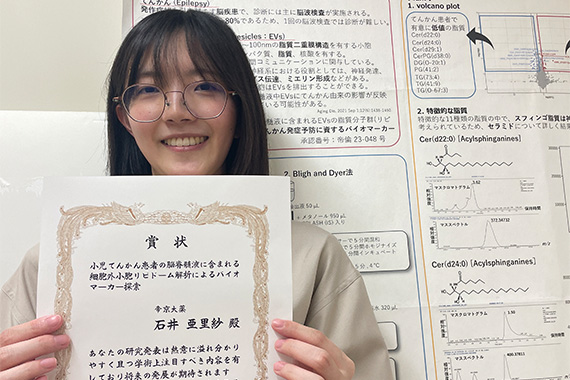 てんかん (Epilepsy)
発作症状を主とする脳疾患で、診断には主に脳波検査が実施される。
80%であるため、1回の脳波検査では診断が難しい。
esicles : EVs)
~100nmの脂質二重膜構造を有する小胞
パク質、脂質、核酸を有する。
胞コミュニケーションに関与している。
経系における役割としては、神経発達、
プス伝達、ミエリン形成などがある。
有EVsを排出することができる。
髄液中EVsにてんかん由来の影響が反映
いる可能性がある。
髄液に含まれるEVsの脂質分子群(リピ
かん発症予防に資するバイオマーカー
承認番号：帝倫 23-048 号
2. Bligh and Dyer法
+ メタノール 950 μL
1. volcano plot
てんかん患者で
有意に低値の脂質
Cer(d22:0)
Cer(d24:0)
Cer(d29:1)
CerPG(d38:0)
DG(O-20:1)
PG(41:2)
TG(73:4)
TG(41:9)
TG(O-67:3)
2. 特徴的な脂質
特徴的な11種類の脂質の中で、スフィンゴ脂質は神
考えられているため、セラミドについて詳しく結果
Cer(d22:0) [Acylsphinganines]
マスクロマトグラム
5.02
保持時間
マススペクトル
372.34732
m/z
Cer(d24:0) [Acylsphinganines]
マスクロマトグラム
5.56
保持時間
マススペクトル
400.37811
賞状
小児てんかん患者の脳脊髄液に含まれる
細胞外小胞リピドーム解析によるバイオ
マーカー探索
帝京大薬
石井 亜里紗 殿
あなたの研究発表は熱意に溢れ分かり
やすく且つ学術上注目すべき内容を有
しており将来の発展が期待されます